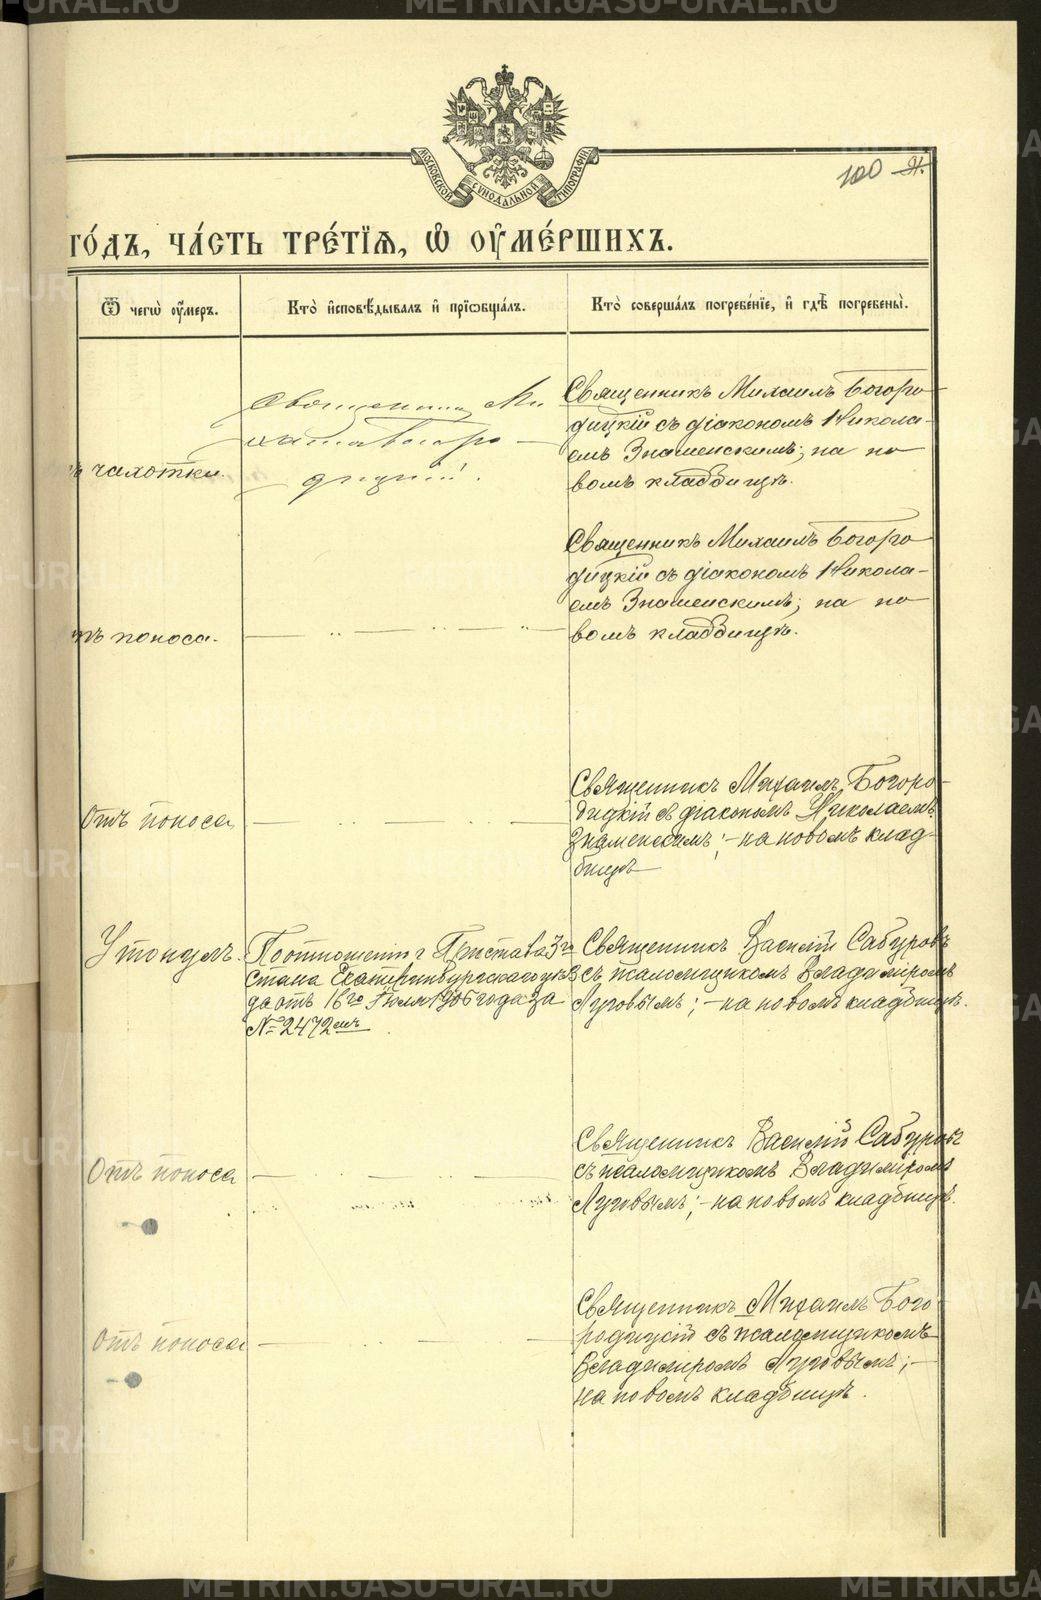 МОСКОВСКОЙ СѴНОДАЛЬНОЙ ТИПОГРАФІИ
100 91.
ГО́ДЪ, ЧА́СТЬ ТРЕ́ТЇѦ, Ѽ ОУ҆МЕ́РШИХЪ.
Ѿ чегѡ̀ оу҆́меръ.
Кто̀ и҆сповѣ́дывалъ и҆ прїѡбща́лъ.
Кто̀ соверша́лъ погребе́нїе, и҆ гдѣ̀ погребены̀.
чахотки.
Священникъ Ми
хаилъ Богоро
дицкій.
Священникъ Михаилъ Богоро
дицкій съ діакономъ Никола-
емъ Знаменскимъ; на но
вомъ кладбищѣ.
тъ поноса.
— „ — „ —
Священникъ Михаилъ Богоро
дицкій съ діакономъ Никола-
емъ Знаменскимъ; на но
вомъ кладбищѣ.
Отъ поноса
Священникъ Михаилъ Богоро-
дицкій съ діакономъ Николаемъ
Знаменскимъ; - на новомъ клад-
бищѣ
Утонулъ.
По отношенію г. Пристава 3го
стана Екатеринбургскаго уѣз
да отъ 16го Іюля 1906 года за
№ 2472мъ.
Священникъ Василій Сабуровъ
съ псаломщикомъ Владиміромъ
Луговымъ; - на новомъ кладбищѣ.
Отъ поноса
Священникъ Василій Сабуровъ
съ псаломщикомъ Владиміромъ
Луговымъ; - на новомъ кладбищѣ.
Отъ поноса
Священникъ Михаилъ Бого-
родицкій съ псаломщикомъ
Владиміромъ Луговымъ; -
на новомъ кладбищѣ.
METRIKI.GASO-URAL.RU